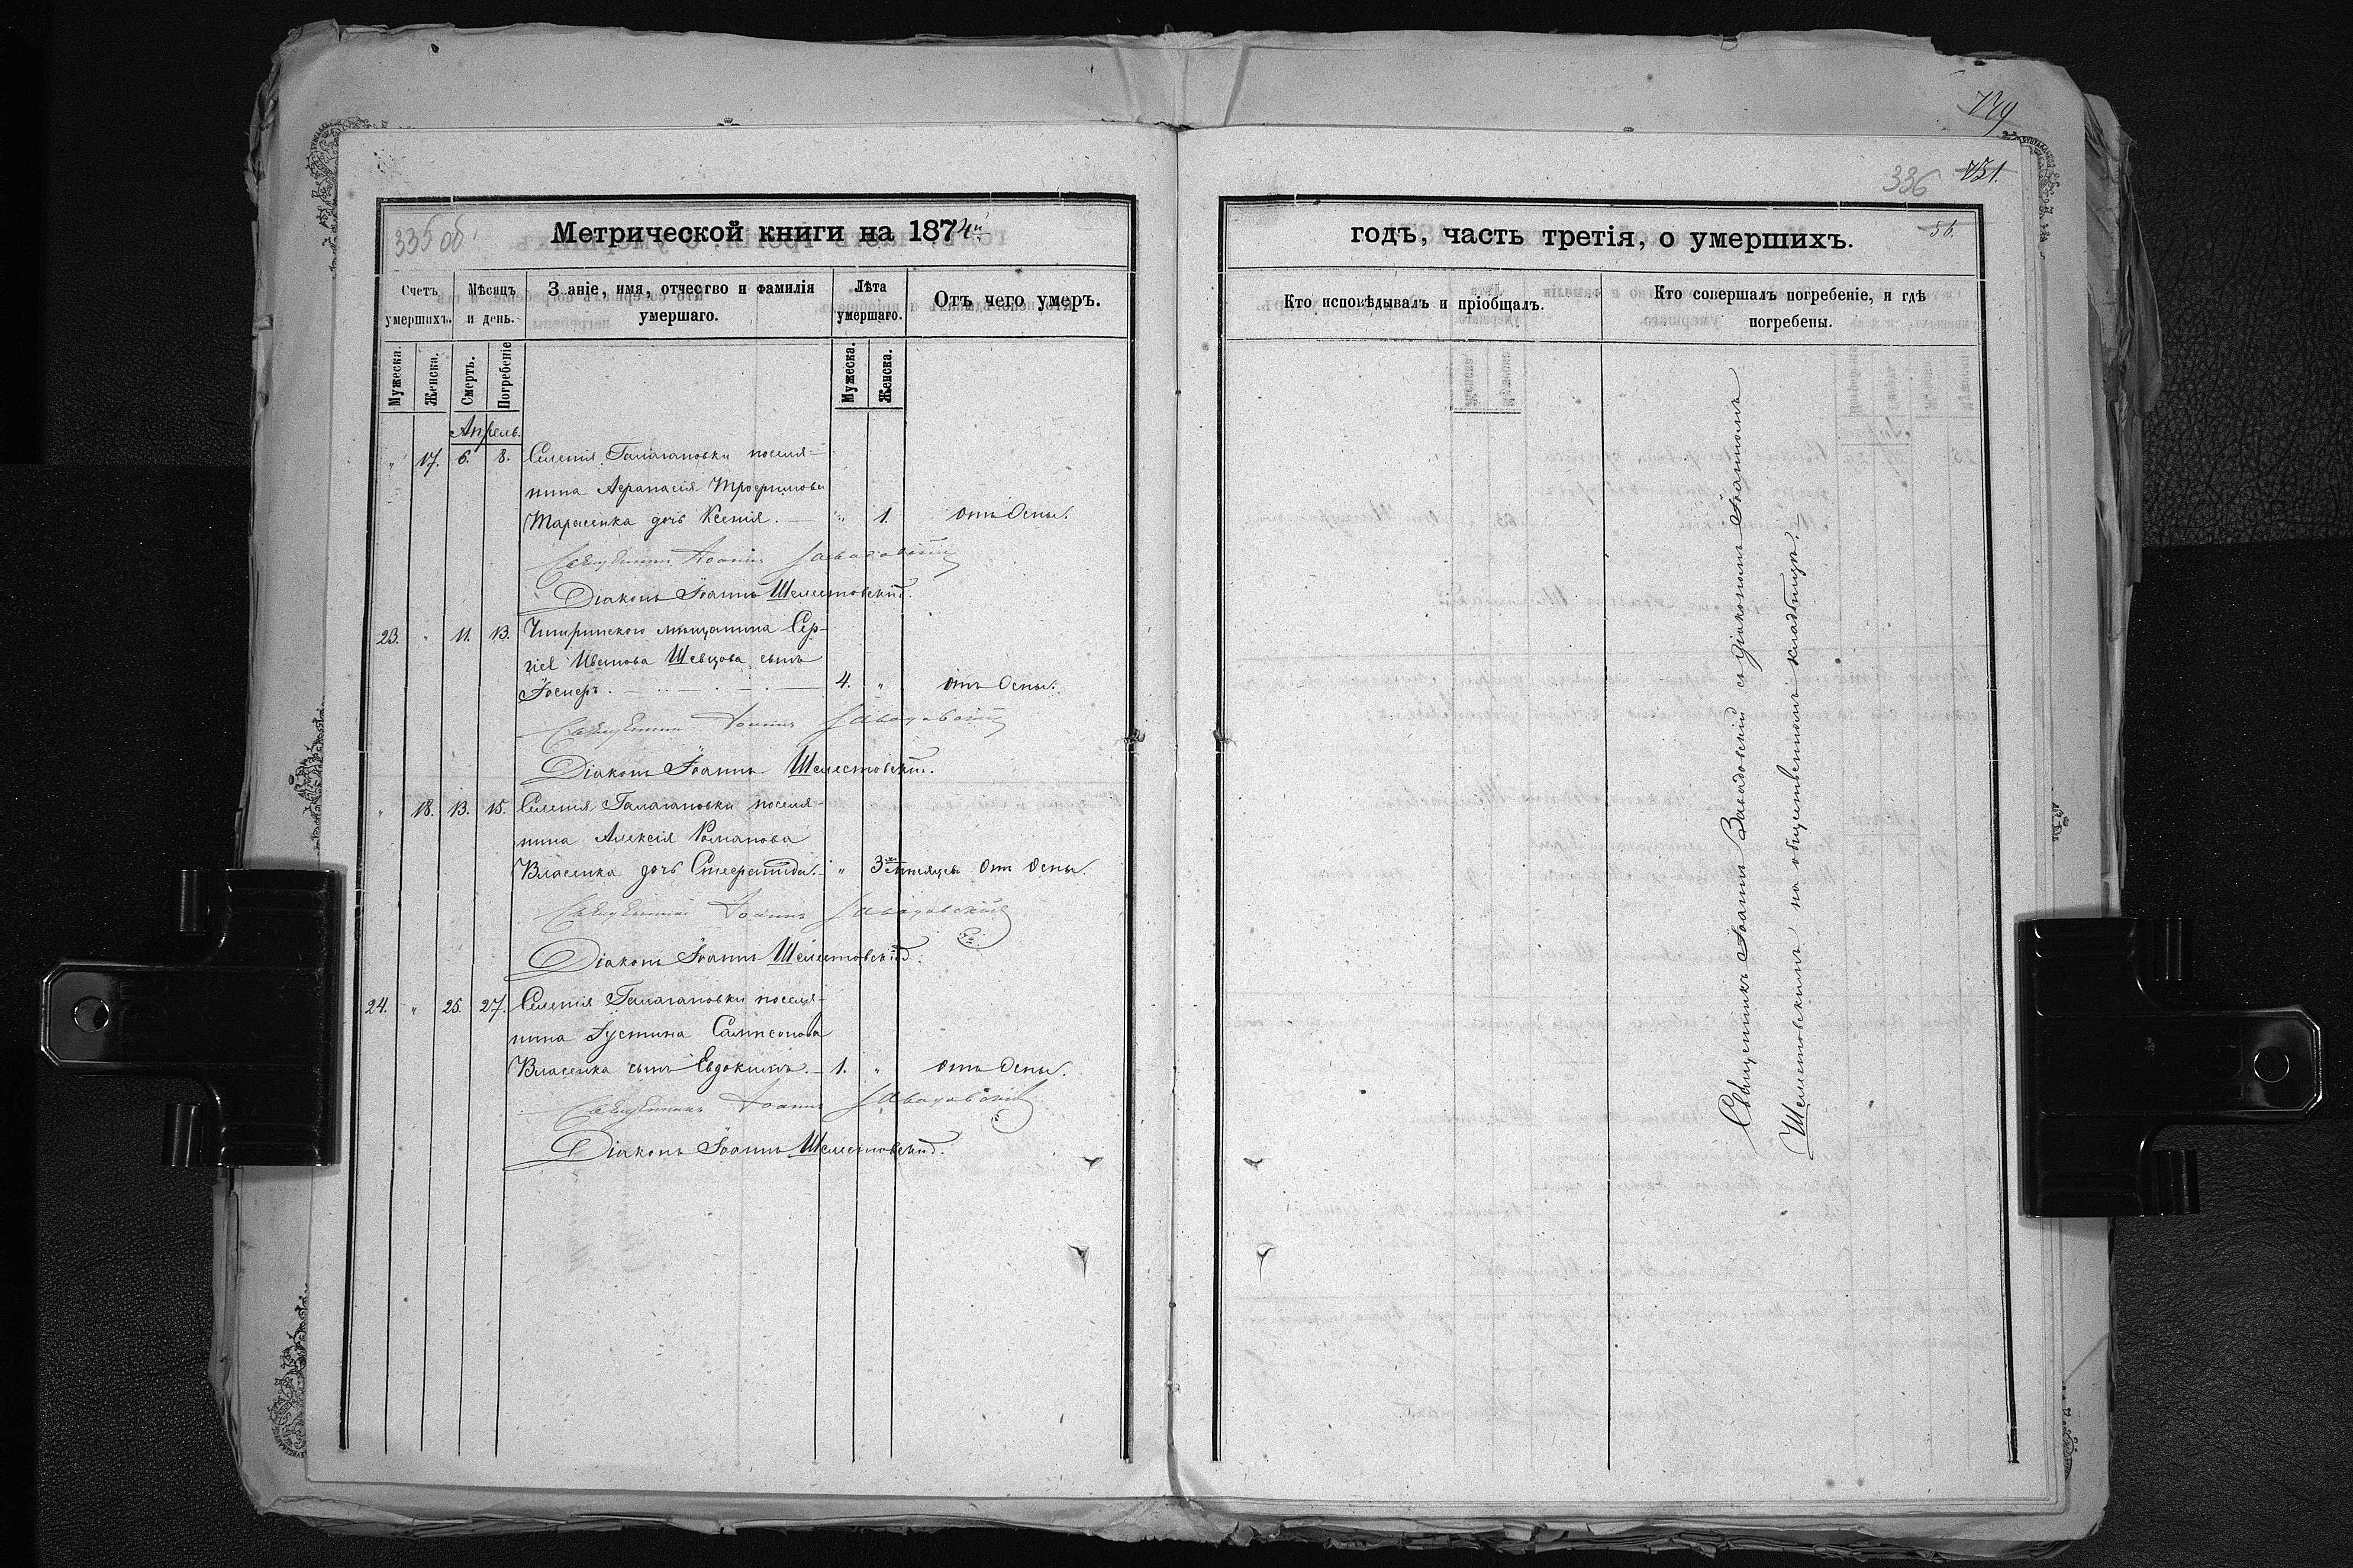 335 об
Метрической книги на 1874й
Счетъ умершихъ.
Мѣсяцъ и день.
Званіе, имя, отчество и фамилія умершаго.
Лѣта умершаго.
Отъ чего умеръ.
Мужеска.
Женска.
Смерть.
Погребеніе
Мужеска.
Женска.
Апрель.
" 17. 6. 8. Селенія Галагановки поселя-
нина Афанасія Трофимова
Тарасенка дочь Ксенія. — " 1. отъ Оспы.
Священникъ Іоаннъ Завадовскій
Діаконъ Іоаннъ Шелестовскій.
23. " 11. 13. мѣщанина Сер-
гія Иванова Шевцова сынъ
Іосифъ. 4. " отъ Оспы.
Священникъ Іоаннъ Завадовскій
Діаконъ Іоаннъ Шелестовскій.
" 18. 13. 15. Селенія Галагановки поселя-
нина Алексія Романова
Власенка дочь " 3 мѣсяцев отъ Оспы.
Священникъ Іоаннъ Завадовскій
Діаконъ Іоаннъ Шелестовскій.
24. " 25. 27. Селенія Галагановки поселя-
нина Іустина Сампсонова
Власенка сынъ Евдокимъ. — 1. " отъ Оспы.
Священникъ Іоаннъ Завадовскій
Діаконъ Іоаннъ Шелестовскій.
336
751.
56.
годъ, часть третія, о умершихъ.
Кто исповѣдывалъ и пріобщалъ.
Кто совершалъ погребеніе, и гдѣ погребены.
Священникъ Іоаннъ Завадовскій съ Діакономъ Іоанномъ
Шелестовскимъ на общественномъ кладбищѣ.